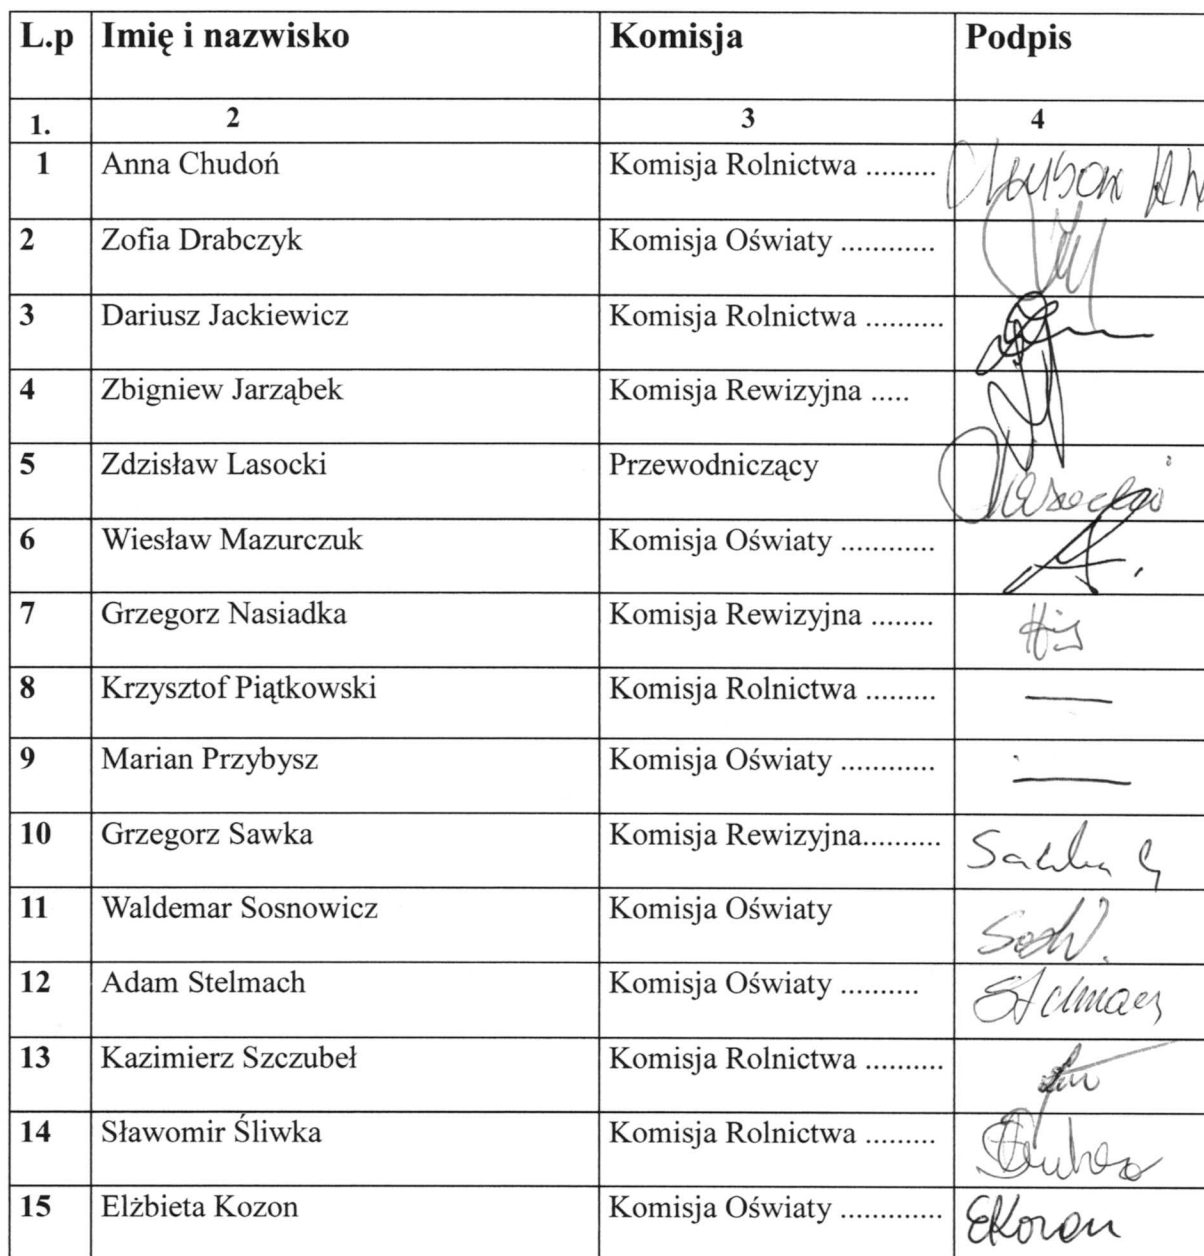 L.p Imię i nazwisko Komisja Podpis
1. 2 3 4
1 Anna Chudoń Komisja Rolnictwa .........
2 Zofia Drabczyk Komisja Oświaty ............
3 Dariusz Jackiewicz Komisja Rolnictwa ..........
4 Zbigniew Jarząbek Komisja Rewizyjna .....
5 Zdzisław Lasocki Przewodniczący
6 Wiesław Mazurczuk Komisja Oświaty ............
7 Grzegorz Nasiadka Komisja Rewizyjna ........
8 Krzysztof Piątkowski Komisja Rolnictwa ......... —
9 Marian Przybysz Komisja Oświaty ............ —
10 Grzegorz Sawka Komisja Rewizyjna.......... Sawka G
11 Waldemar Sosnowicz Komisja Oświaty
12 Adam Stelmach Komisja Oświaty .......... Stelmach
13 Kazimierz Szczubeł Komisja Rolnictwa ..........
14 Sławomir Śliwka Komisja Rolnictwa .........
15 Elżbieta Kozon Komisja Oświaty ............. EKozon